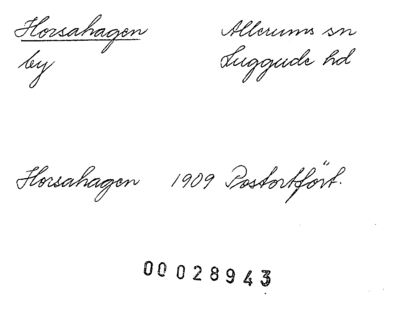 Horsahagen Allerums sn
by Luggude hd
Horsahagen 1909 Postortsfört.
00028943